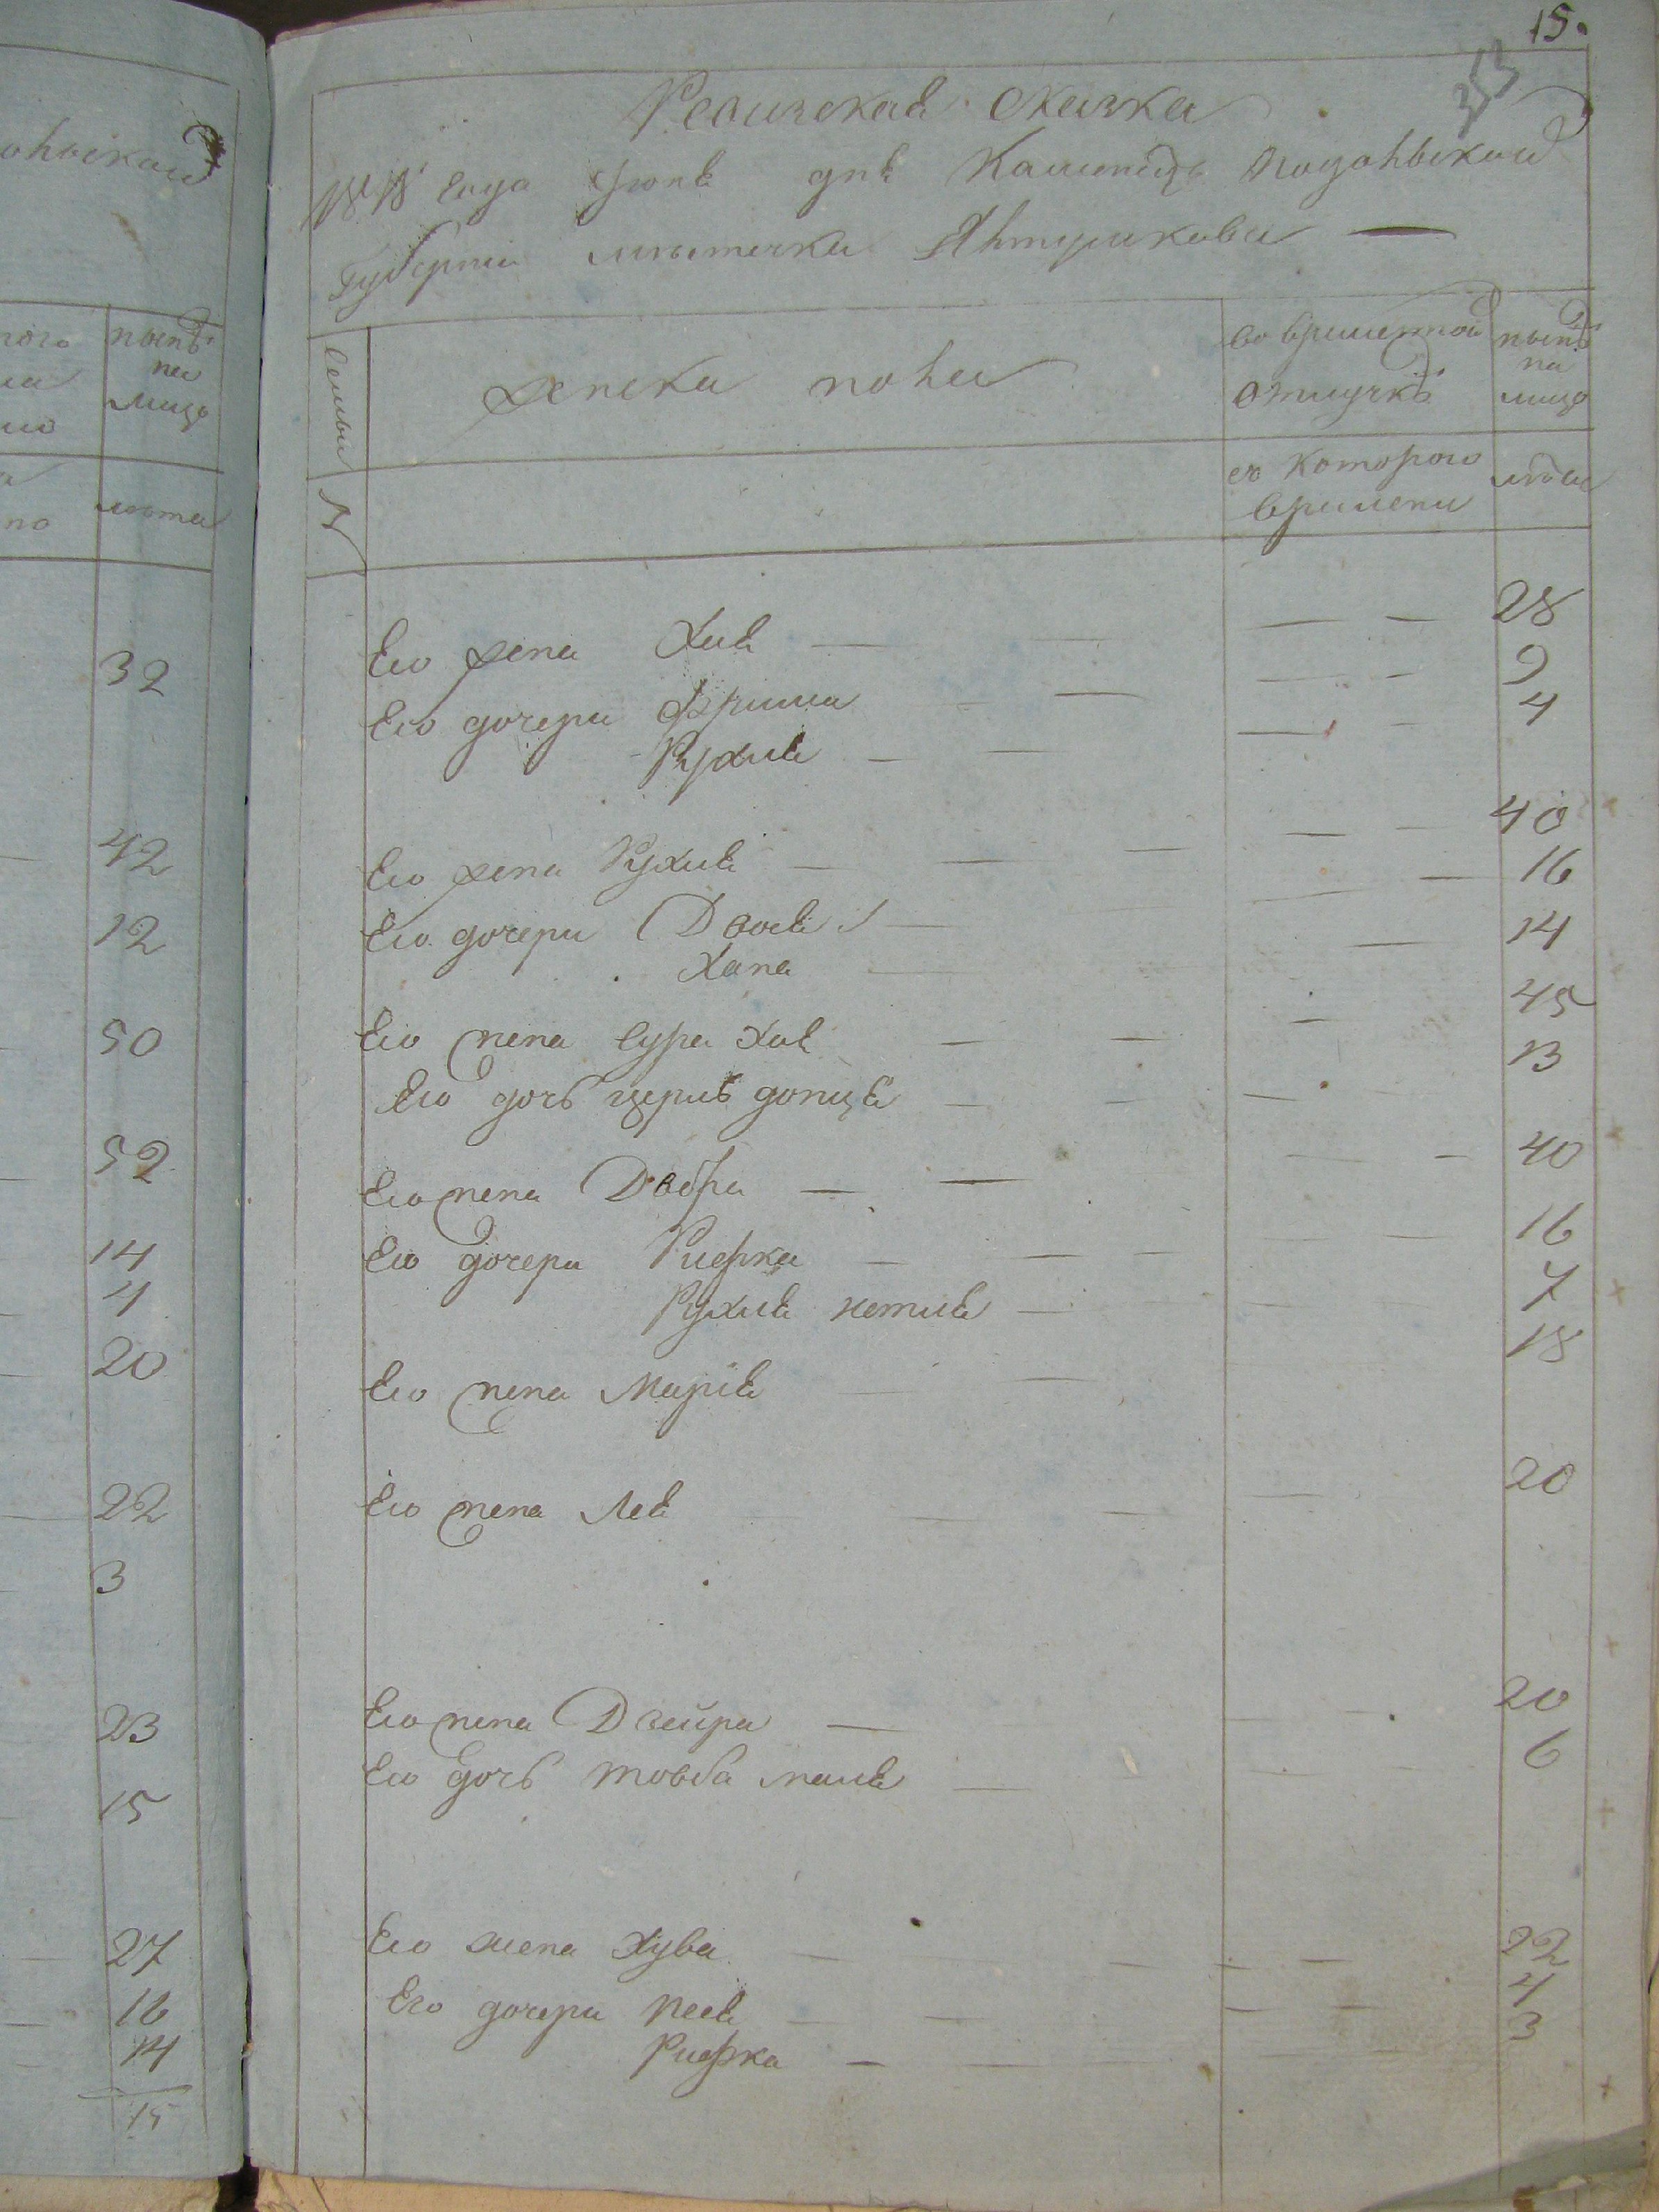 ольской
ного
нынѣ
на
лицо
лѣта
но
32
42
12
50
52
14
4
20
22
3
23
15
27
16
14
15
15.
353
Ревизская сказка
года Июня дня Каменецъ Подольской
Губерніи мѣстечка
Семьи
женска полу
во временной
отлучкѣ
нынѣ
на
лицо
№
съ котораго
времени
лѣта
Его жена Хая 28
Его дочери Фрима 9
Рухля 4
Его жена Рухля 40
Его дочери Двося 16
Хана 14
Его жена Сура Хая 45
Его дочь 13
Его жена Двойра 40
Его дочери Рифка 16
Рухля 7
Его жена Марія 18
Его жена Лея 20
Его жена Двейра 20
Его дочь Товба 6
Его жена Хува 22
Его дочери Песя 4
Рифка 3